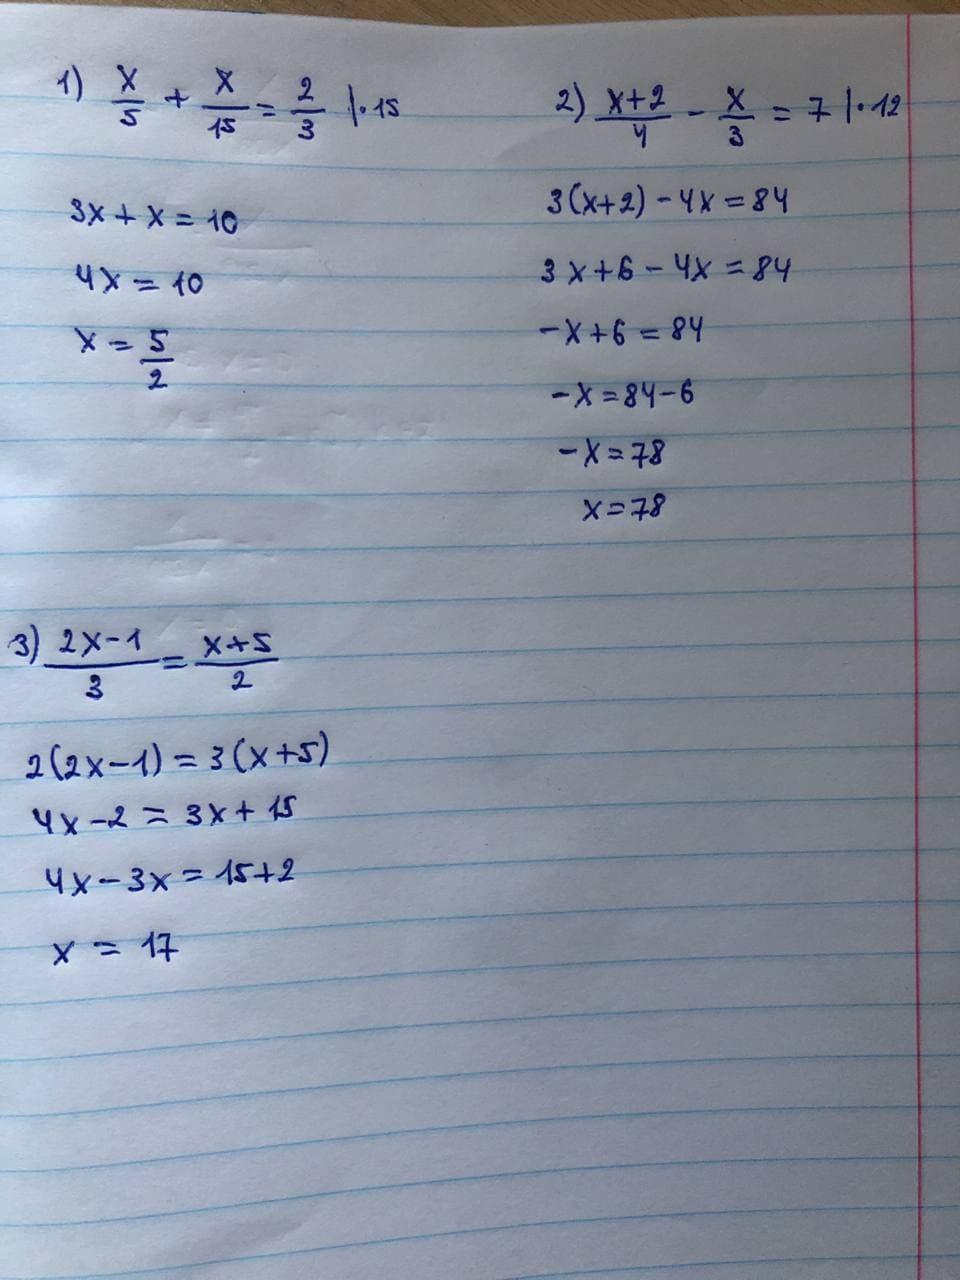 1) x/5 + x/15 = 2/3 |·15
3x + x = 10
4x = 10
x = 5/2
2) (x+2)/4 - x/3 = 7 |·12
3(x+2) - 4x = 84
3x + 6 - 4x = 84
-x + 6 = 84
-x = 84 - 6
-x = 78
x = 78
3) (2x-1)/3 = (x+5)/2
2(2x-1) = 3(x+5)
4x - 2 = 3x + 15
4x - 3x = 15 + 2
x = 17